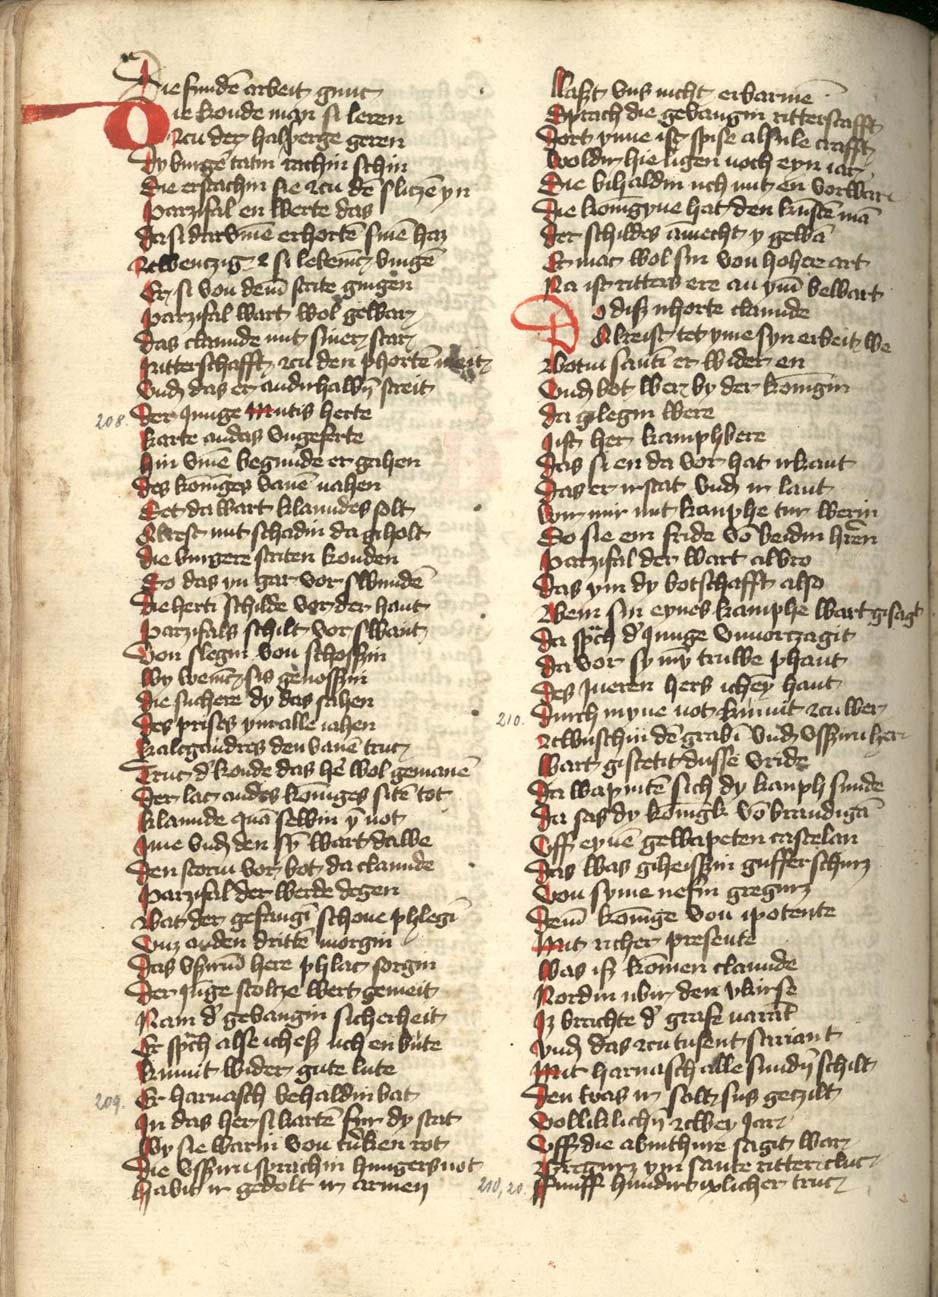 Die sunden arbeit gunt
Die konde man si leren
zcu der halsperge geren
Dy burger tatin rachin schin
Die erstachin sie zcu den slitzen yn
Parzifal en werte das
da si darvme erhorten sinen haz
zcwenczig si lebende vingen
Er si von dem strite gingen
Parzifal wart wol gewar
das clamide mit siner schar
Ritterschafft zcu den phorten meit
vnd das er andirhalben streit
208.
Der Junge mutis herte
karte an das vngeferte
hin vme begunde er gahen
des koniges vanen nahen
Set da wart klamides solt
Alrest mit schadin da geholt
die burgere striten konden
So das yn gar vor swunden
die herti schilde vor der hant
Parzifals schilt vor swant
von slegin von schossin
wy wening sis genossin
die suchere dy das sahen
des prises ym alle iahen
kalogandres den vanen truc
der konde das her wol gemanen
Der lac an des koniges siten tot
klamide quam selbin y not
yme vnd den syn wart da we
den storm vor bot da clamide
Parzifal der werde degen
bat der gefangin schone phlegin
vnz an den dritten morgin
das vssirm here phlac sorgin
der Junge stoltze wert gemeit
Nam der gevangin sicherheit
Er sprach alse ichesz uch enbute
kumit wider gute lute
209.
Er harnasch behaldin bat
In das her si karten fur dy stat
wy sie warin von trunken rot
die vssirn sprachin hungers not
habit ir gedolt ir armen
Laszt vns nicht erbarme
Sprach die gevangin ritterschafft
dort ynne ist spise alsule crafft
woldin hie ligen noch eyn iar
die bihaldin uch mit en vorwar
die konigyne hat den kunsten man
der schildes amecht y gewan
Er mac wol sin von hoher art
Na ist ritters ere an ym bewart
Do disz irhorte clamide
Alreist tet yme syn erbeit we
Botin sant er wider en
vnd bot wer by der konigin
da gelegin were
ist her kamphbere
das si en da vor hat irkant
das er ir stat vnd ir lant
vor mir mit kamphe tur werin
So sie ein fride von beidin heren
Parzifal der wart alvro
das ym dy botschafft also
wem sin eynes kamphe wart gesagt
da sprach der Junge vnuorzagit
da vor sy myn truwe phant
des Inneren hers ichey hant
210.
durch myne not kumit zcu wer
zcwuschin den grabin vnd vssirm her
wart gistetit dusse vride
Da wapinten sich dy kamphsmide
Da sas dy konigk von brandigan
vff eynen gewapeten castelan
das was giheissin guffer schurz
von syme nefin gregurz
Dem konige von ipotente
mit richer presente
was isz komen clamide
Nordin ubir den vkirse
Iz brachte der grafe narant
vnd das zcu tusent scariant
mit harnasch alle sundir schilt
den was ir solt sus gezilt
volliklichin zcwei Jar
vff die abinthure sagit war
Gregurz ym sante ritter cluc
210,20.
funff hundirt ixlicher truc